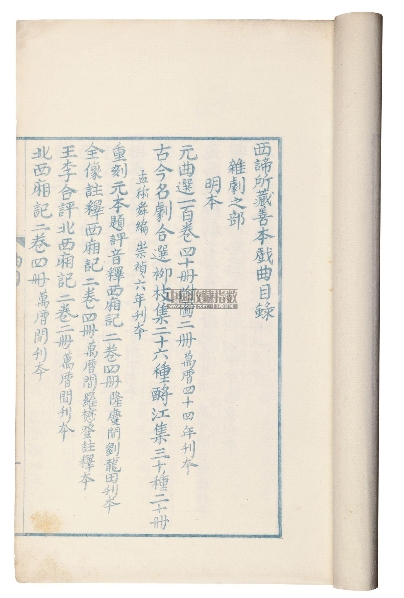 西諦所藏善本戲曲目錄
雜劇之部
明本
元曲選一百卷四十册附圖二册萬曆四十四年刊本
古今名劇合選柳枝集二十六種酹江集三十種二十册
孟稱舜編崇禎六年刊本
重刻元本題評音釋西廂記二卷四册隆慶間劉龍田刊本
全像註釋西廂記二卷四册萬曆間羅懋登註釋本
王李合評北西廂記二卷二册萬曆間刊本
北西廂記二卷四册萬曆間刊本